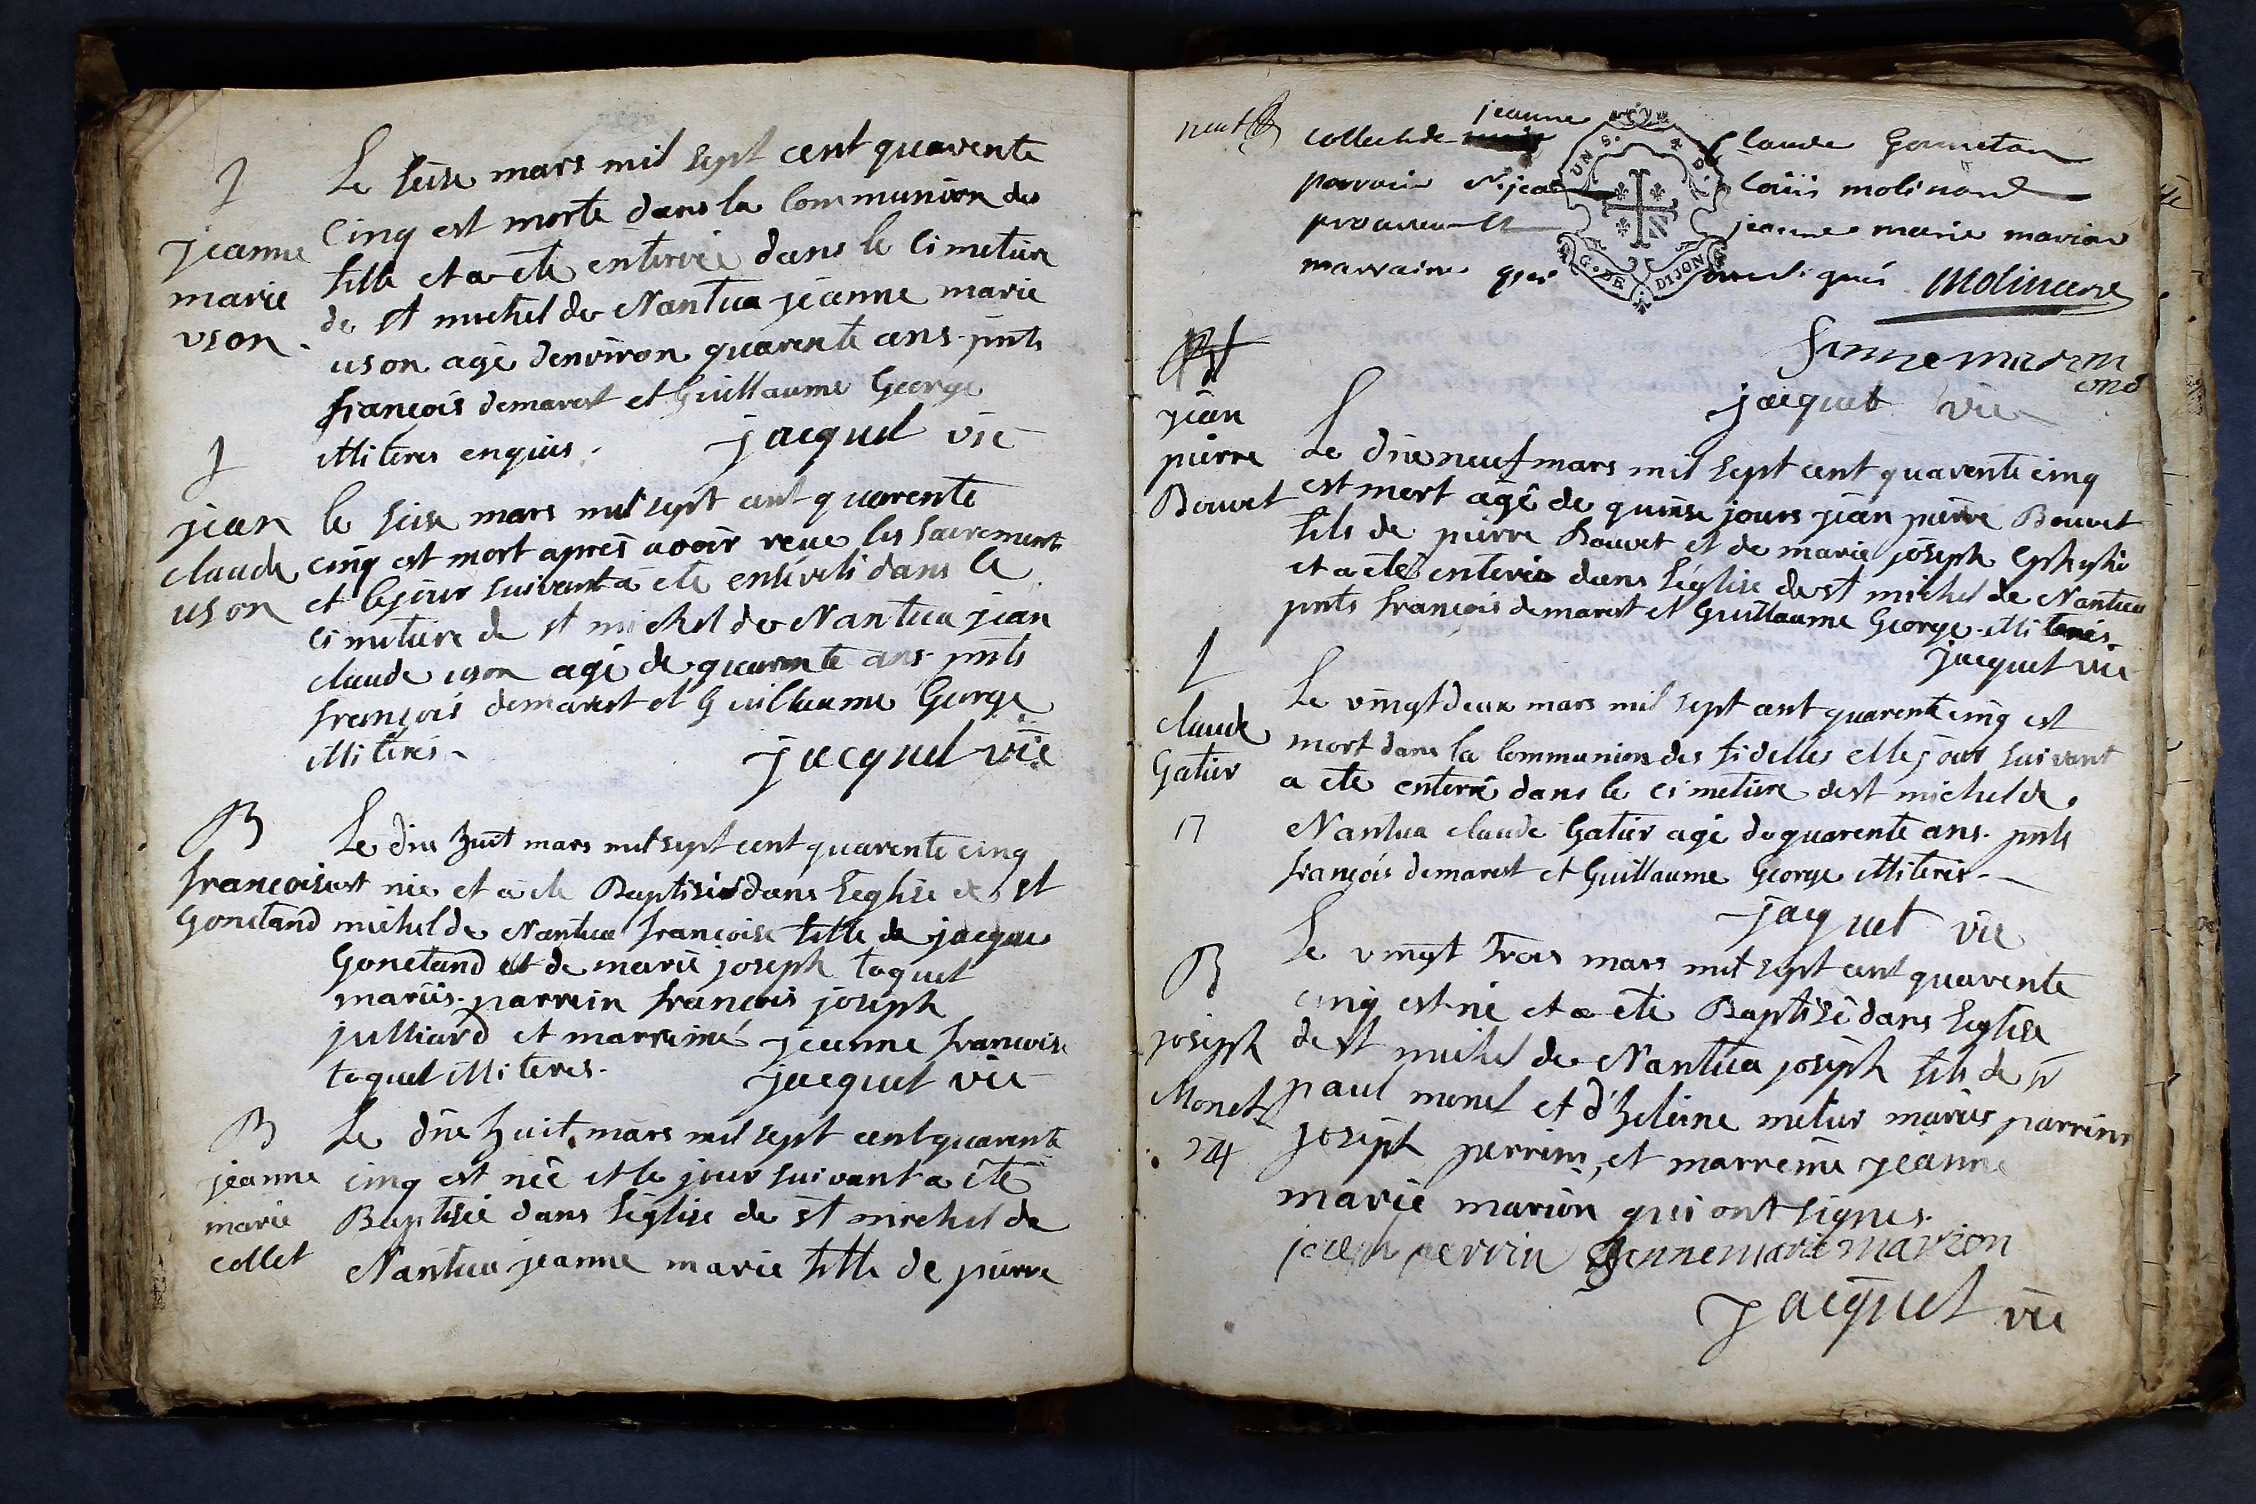 Le seise mars mil sept cent quarente
cinq est morte dans la Communion des
jeanne
marie
uson
fille et a ete enterrée dans le Cimetiere
de st michel de Nantua jeanne marie
uson agé denviron quarente ans pnts
françois demarest et Guillaume George
illiteres enquis. jacquet vic
jean
claude
uson
le seise mars mil sept cent quarente
cinq est mort aprés avoir reçue les sacrements
et le jour suivant a ete enseveli dans le
cimetiere de st michel de Nantua jean
claude uson agé de quarente ans pnts
françois demarest et Guillaume George
illiterés jacquet vic
B
francoise
Gonetand
Le dix huit mars mil sept cent quarente cinq
est née et a ete Baptisée dans l'eglise de st
michel de Nantua françoise fille de jacque
Gonetand et de marie joseph taquet
mariés. parrein françois joseph
julliard et marreine jeanne francoise
taquet illiteres. jacquet vic
B
jeanne
marie
collet
Le dix huit mars mil sept cent quarente
cinq est née et le jour suivant a été
Baptisée dans l'église de st michel de
Nantua jeanne marie fille de pierre
collet et de jeanne Claude Gonnetan
parrain Louis molinard
jeanne marie marion
marraine qui signés Molinard
jacquet vic
jean
pierre
Bouvet
Le dixneuf mars mil sept cent quarente cinq
est mort agé de quinse jours jean pierre Bouvet
fils de pierre Bouvet et de marie joseph
et a eté enterré dans l'église de st michel de Nantua
pnts françois demarest et Guillaume George illiterés
jacquet vic
claude
Gatier
17
Le vingt deux mars mil sept cent quarente cinq est
mort dans la Communion des fidelles et le jour suivant
a ete enterré dans le cimetiere de st michel de
Nantua claude Gatier agé de quarente ans. pnts
françois demarest et Guillaume George illiteres
jacquet vic
B
joseph
Monet
Le vingt trois mars mil sept cent quarente
cinq est né et a eté Baptisé dans l'eglise
de st michel de Nantua joseph fils de sr
paul monet et d'heleine metier mariés parrein
joseph perrin, et marreine jeanne
marie marion qui ont signés.
joseph perrin jennemarie marion
jacquet vic
G. DE DIJON